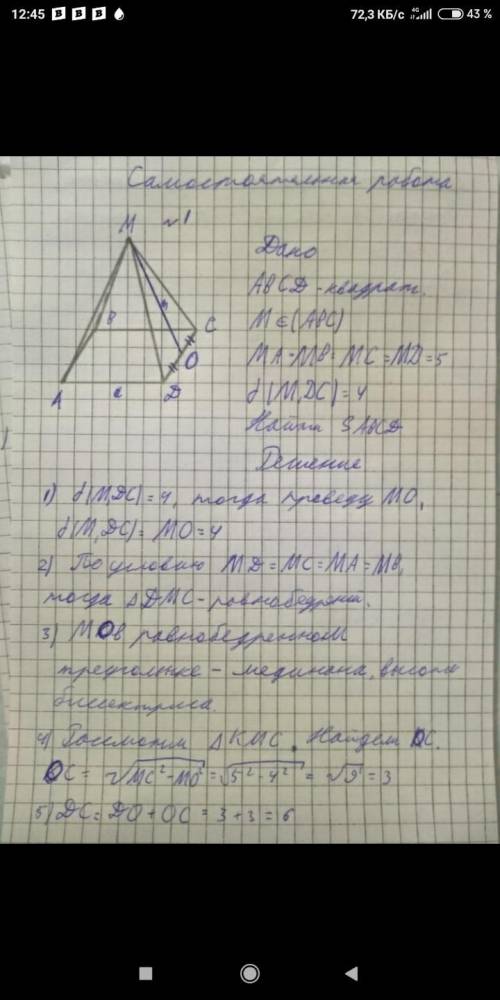 12:45 B B B 72,3 КБ/с 4G 43 %
Самостоятельная работа
№1
M
B
C
O
A
a
D
Дано
ABCD - квадрат.
M ∈ (ABC)
MA = MB = MC = MD = 5
ρ(M,DC) = 4
Найти SABCD
Решение
1) ρ(M,DC) = 4, тогда проведу MO,
ρ(M,DC) = MO = 4
2) По условию MD = MC = MA = MB,
тогда △DMC - равнобедрен.
3) MO в равнобедренном
треугольнике - медиана, высота
биссектриса.
4) △KMC. Найдем OC.
OC = √MC² - MO² = √5² - 4² = √9 = 3
5) DC = DO + OC = 3 + 3 = 6